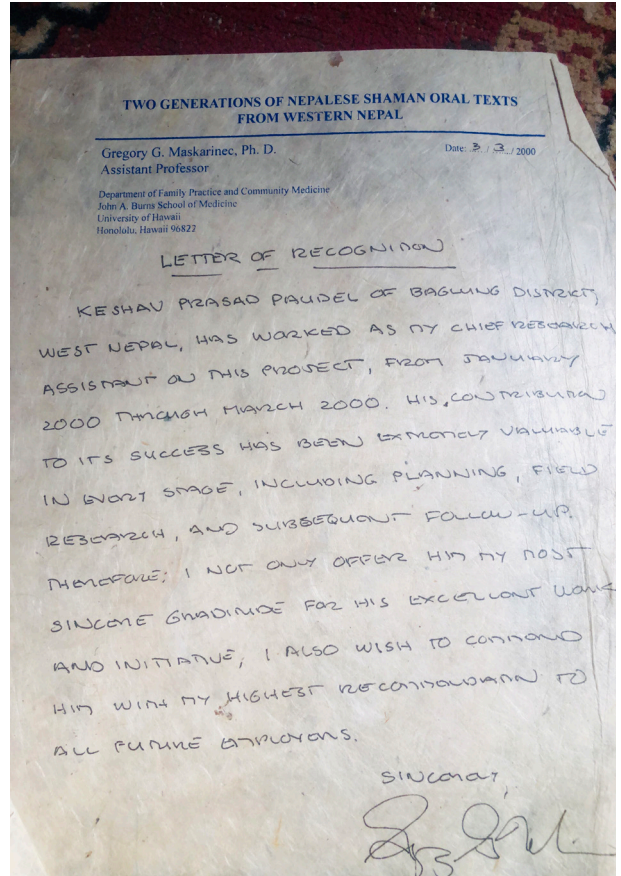 TWO GENERATIONS OF NEPALESE SHAMAN ORAL TEXTS
FROM WESTERN NEPAL
Gregory G. Maskarinec, Ph. D.
Date: 3 / 3 / 2000
Assistant Professor
Department of Family Practice and Community Medicine
John A. Burns School of Medicine
University of Hawaii
Honolulu, Hawaii 96822
LETTER OF RECOGNITION
KESHAV PRASAD PAUDEL OF BAGLUNG DISTRICT,
WEST NEPAL, HAS WORKED AS MY CHIEF RESEARCH
ASSISTANT ON THIS PROJECT, FROM JANUARY
2000 THROUGH MARCH 2000. HIS CONTRIBUTION
TO ITS SUCCESS HAS BEEN EXTREMELY VALUABLE
IN EVERY STAGE, INCLUDING PLANNING, FIELD
RESEARCH, AND SUBSEQUENT FOLLOW-UP.
THEREFORE; I NOT ONLY OFFER HIM MY MOST
SINCERE GRATITUDE FOR HIS EXCELLENT WORK
AND INITIATIVE, I ALSO WISH TO COMMEND
HIM WITH MY HIGHEST RECOMMENDATION TO
ALL FUTURE EMPLOYERS.
SINCERELY,